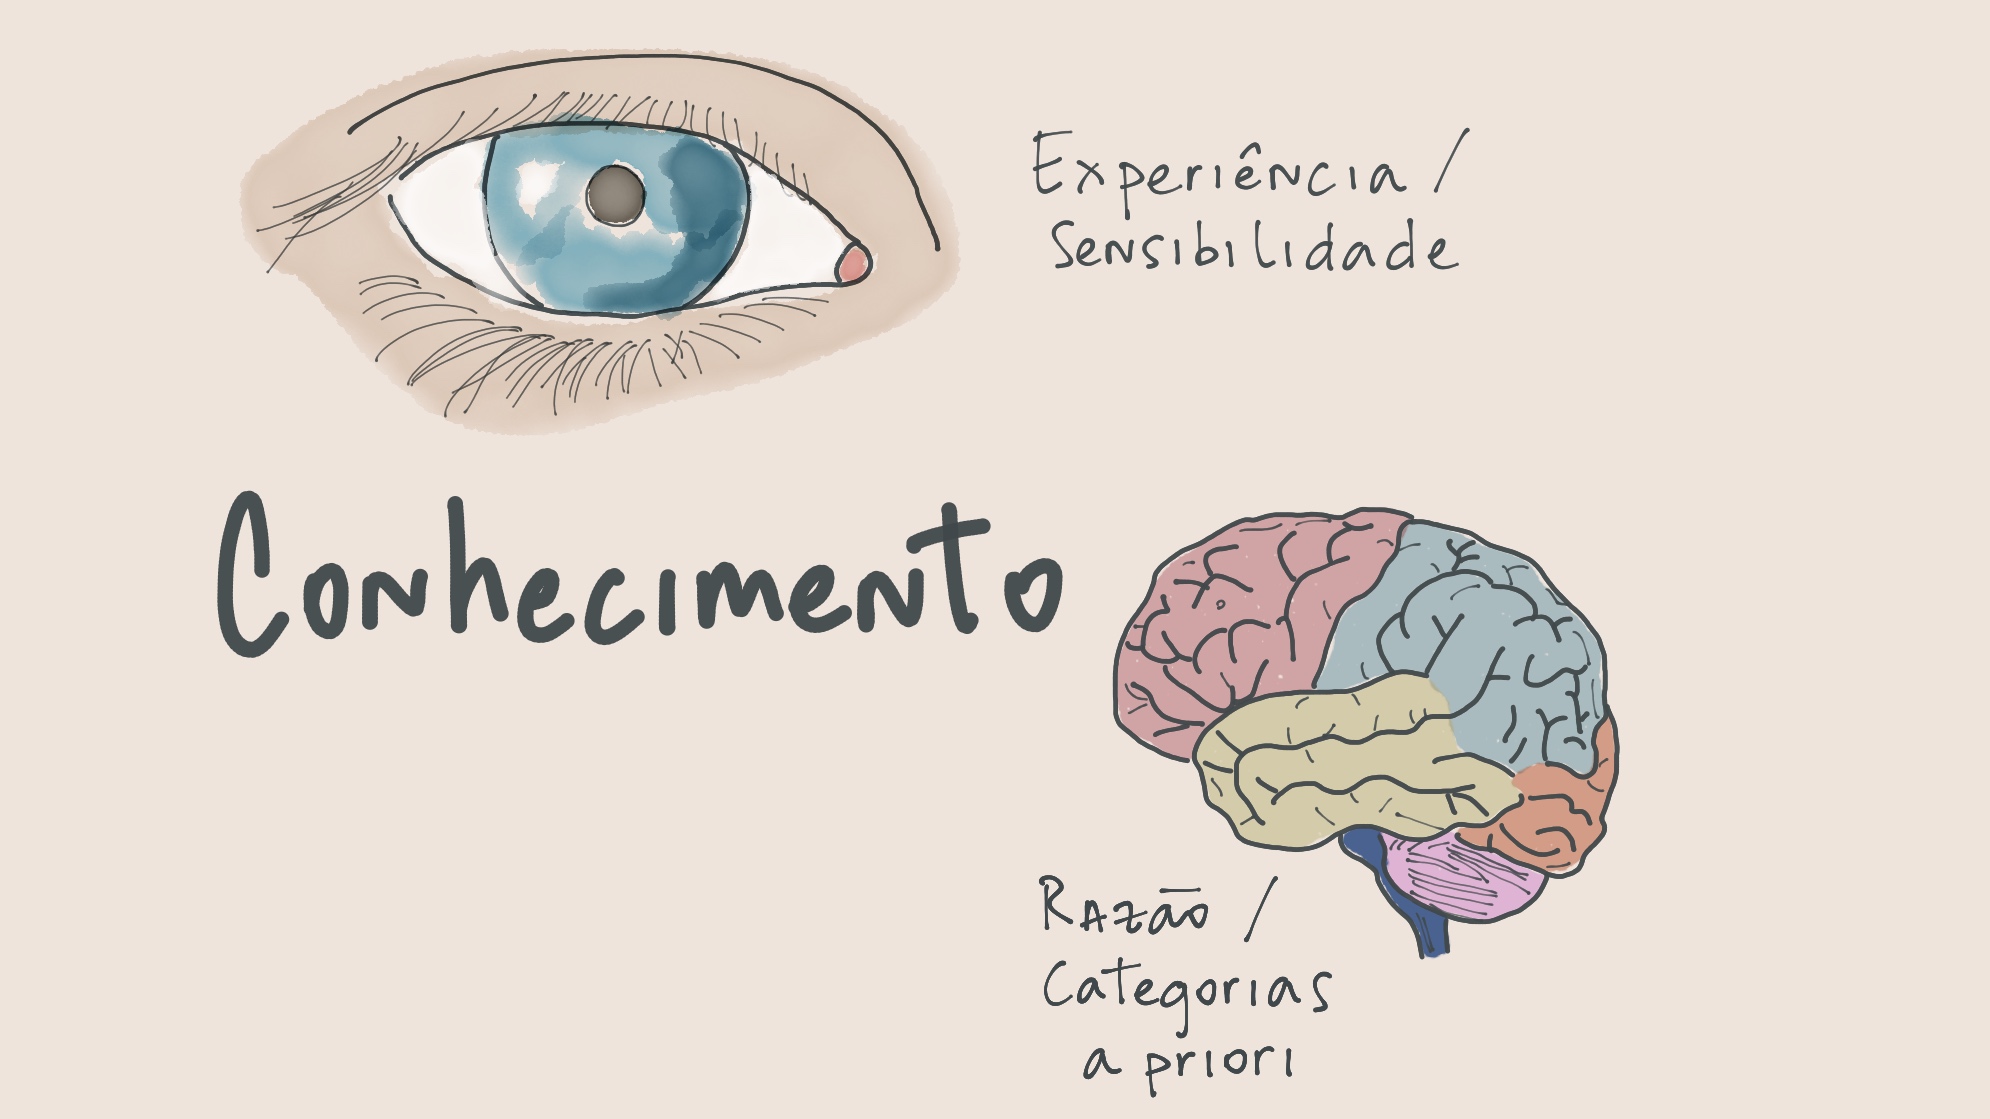 Experiência /
Sensibilidade
Conhecimento
Razão /
Categorias
a priori